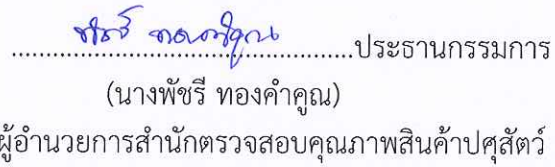 ..........................................ประธานกรรมการ
(นางพัชรี ทองคำคูณ)
ผู้อำนวยการสำนักตรวจสอบคุณภาพสินค้าปศุสัตว์